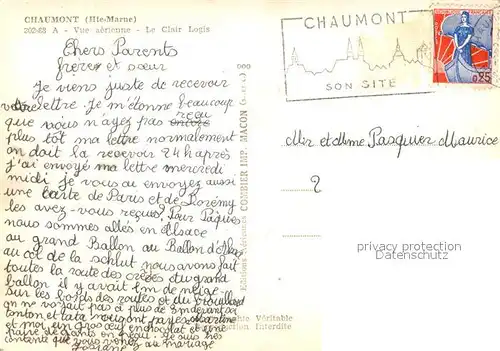 CHAUMONT (Hte-Marne)
202-68 A - Vue aérienne - Le Clair Logis
Chers Parents
frère et sœur
je viens juste de recevoir
votre lettre. Je m'étonne beaucoup
que vous n'ayez pas reçu
plus tôt ma lettre normalement
on doit la recevoir 24h après
j'ai envoyé ma lettre mercredi
midi. Je vous ai envoyé aussi
une carte de Paris et de
les avez-vous reçues? Pour Pâques
nous sommes allés en Alsace
au grand Ballon au Ballon d'Alsace
au col de la schlut nous avons fait
toute la route des crêtes du grand
ballon il y avait 1m de neige
sur les bords des routes et du brouillard
on ne voyait pas à plus de 5m devant soi
tonton et tata nous ont payés
et moi un gros œuf en chocolat et une
paire de gants en peau. Je suis très
contente que vous venez au mariage
CHAUMONT
SON SITE
0,25
COMBIER IMP. MACON
000
Véritable
Interdite
Mr et Mme Pasquier Maurice
2
privacy protection
Datenschutz